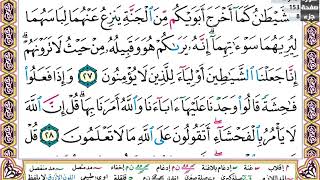 صفحة 153
جزء
ٱلشَّيْطَٰنُ كَمَآ أَخْرَجَ أَبَوَيْكُم مِّنَ ٱلْجَنَّةِ يَنزِعُ عَنْهُمَا لِبَاسَهُمَا
لِيُرِيَهُمَا سَوْءَٰتِهِمَآ إِنَّهُۥ يَرَىٰكُمْ هُوَ وَقَبِيلُهُۥ مِنْ حَيْثُ لَا تَرَوْنَهُمْ
إِنَّا جَعَلْنَا ٱلشَّيَٰطِينَ أَوْلِيَآءَ لِلَّذِينَ لَا يُؤْمِنُونَ ٢٧ وَإِذَا فَعَلُوا۟
فَٰحِشَةً قَالُوا۟ وَجَدْنَا عَلَيْهَآ ءَابَآءَنَا وَٱللَّهُ أَمَرَنَا بِهَا قُلْ إِنَّ ٱللَّهَ
لَا يَأْمُرُ بِٱلْفَحْشَآءِ أَتَقُولُونَ عَلَى ٱللَّهِ مَا لَا تَعْلَمُونَ ٢٨ قُلْ